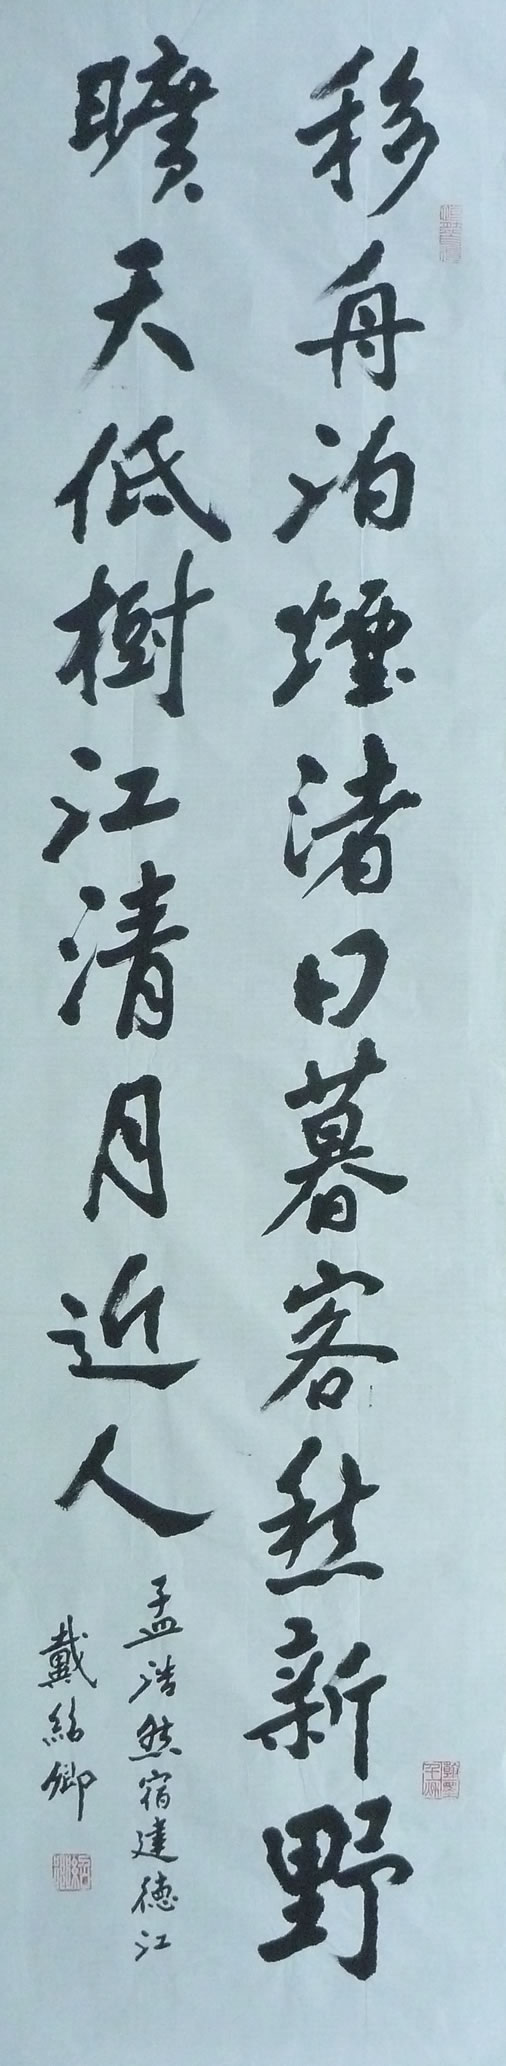 移舟泊煙渚日暮客愁新野
曠天低樹江清月近人
孟浩然宿建德江
戴紹卿